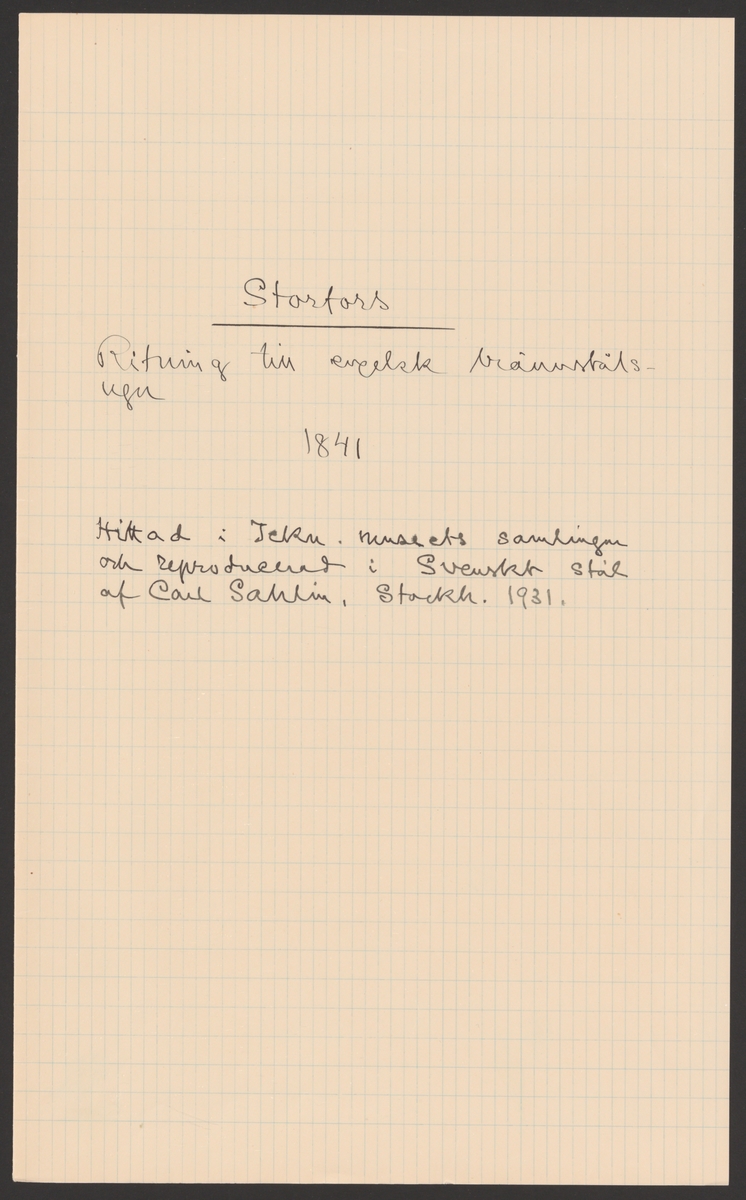 Storfors
Ritning till engelsk brännståls-
ugn
1841
Hittad i Tekn. museets samlingar
och reproducerad i Svenskt stål
af Carl Sahlin, Stockh. 1931.